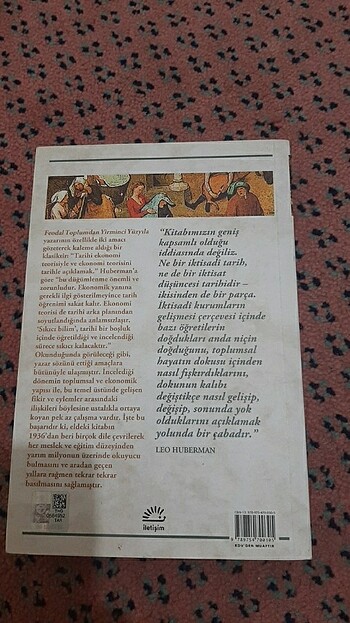 Feodal Toplumdan Yirminci Yüzyıla
yazarının özellikle iki amacı
gözeterek kaleme aldığı bir
klasiktir: "Tarihi ekonomi
teorisiyle ve ekonomi teorisini
tarihle açıklamak." Huberman'a
göre "bu düğümlenme önemli ve
zorunludur. Ekonomik yanına
gerekli ilgi gösterilmeyince tarih
öğrenimi sakat kalır. Ekonomi
teorisi de tarihi arka planından
soyutlandığında anlamsızlaşır.
'Sıkıcı bilim', tarihi bir boşluk
içinde öğretildiği ve incelendiği
sürece sıkıcı kalacaktır."
Okunduğunda görüleceği gibi,
yazar sözünü ettiği amaçlara
bütünüyle ulaşmıştır. İncelediği
dönemin toplumsal ve ekonomik
yapısı ile, bu temel üstünde gelişen
fikir ve eylemler arasındaki
ilişkileri böylesine ustalıkla ortaya
koyan pek az çalışma vardır. İşte bu
başarısıdır ki, eldeki kitabın
1936'dan beri birçok dile çevrilerek
her meslek ve eğitim düzeyinden
yarım milyonun üzerinde okuyucu
bulmasını ve aradan geçen
yıllara rağmen tekrar tekrar
basılmasını sağlamıştır.
"Kitabımızın geniş
kapsamlı olduğu
iddiasında değiliz.
Ne bir iktisadi tarih,
ne de bir iktisat
düşüncesi tarihidir –
ikisinden de bir parça.
İktisadi kurumların
gelişmesi çerçevesi içinde
bazı öğretilerin
doğdukları anda niçin
doğduğunu, toplumsal
hayatın dokusu içinden
nasıl fışkırdıklarını,
dokunun kalıbı
değiştikçe nasıl gelişip,
değişip, sonunda yok
olduklarını açıklamak
yolunda bir çabadır."
LEO HUBERMAN
iletişim